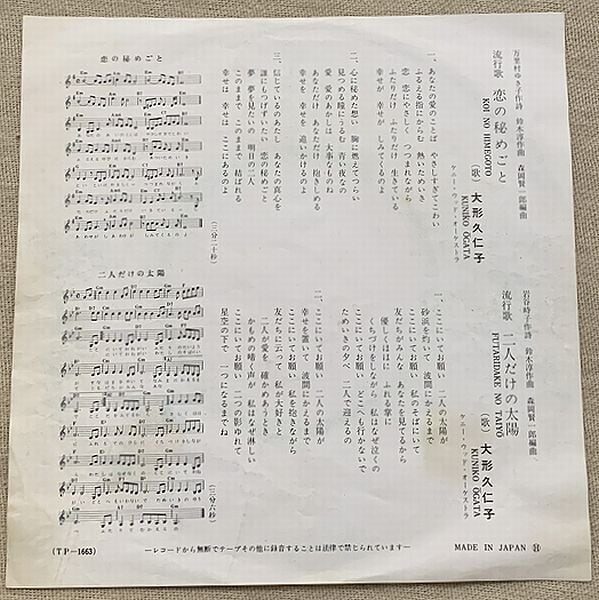 万里村ゆき子作詩 鈴木淳作曲 森岡賢一郎編曲
流行歌 恋の秘めごと
KOI NO HIMEGOTO
(歌) 大形久仁子
KUNIKO OGATA
ケニー・ウッド・オーケストラ
一、あなたの愛のことば やさしすぎてこわい
ふるえる指にからむ 熱いためいき
恋 恋にやさしく つつまれながら
ふたりだけが ふたりだけが 生きている
幸せが 幸せが しみてくるのよ
二、心に秘めた想い 胸に燃えてつらい
見つめる瞳にうるむ 青い夜なの
愛 愛のあかしは 大事なものね
あなただけ あなただけ 抱きしめる
幸せを 幸せを 追いかけるのよ
三、信じているのあたし あなたの真心を
誰にもつげずいたい 恋の秘めごと
夢 夢を見たいの 明日の二人
このままで このままで 結ばれる
幸せは 幸せは ここにあるのね
(三分二十秒)
恋の秘めごと
岩谷時子作詩 鈴木淳作曲 森岡賢一郎編曲
流行歌 二人だけの太陽
FUTARIDAKE NO TAIYO
(歌) 大形久仁子
KUNIKO OGATA
ケニー・ウッド・オーケストラ
一、ここにいてお願い 二人の太陽が
砂浜を灼いて 波間にかえるまで
ここにいてお願い 私のそばにいて
友だちがみんな あなたを見てるから
優しくほほに ふれる掌に
くちづけをしながら 私はなぜ泣くの
ここにいてお願い どこへも行かないで
ためいきの夕べ 二人で迎えるの
二、ここにいてお願い 二人の太陽が
幸せを置いて 波間にかえるまで
ここにいてお願い 私を抱きながら
友だちに云って 私が大好きと
二人が愛を 確かめあうとき
かもめの鳴き声が 私はなぜ淋しい
ここにいてお願い 二つの影ゆれて
星空の下で 一つになるまでね
(三分六秒)
二人だけの太陽
(TP-1663)
—レコードから無断でテープその他に録音することは法律で禁じられています—
MADE IN JAPAN